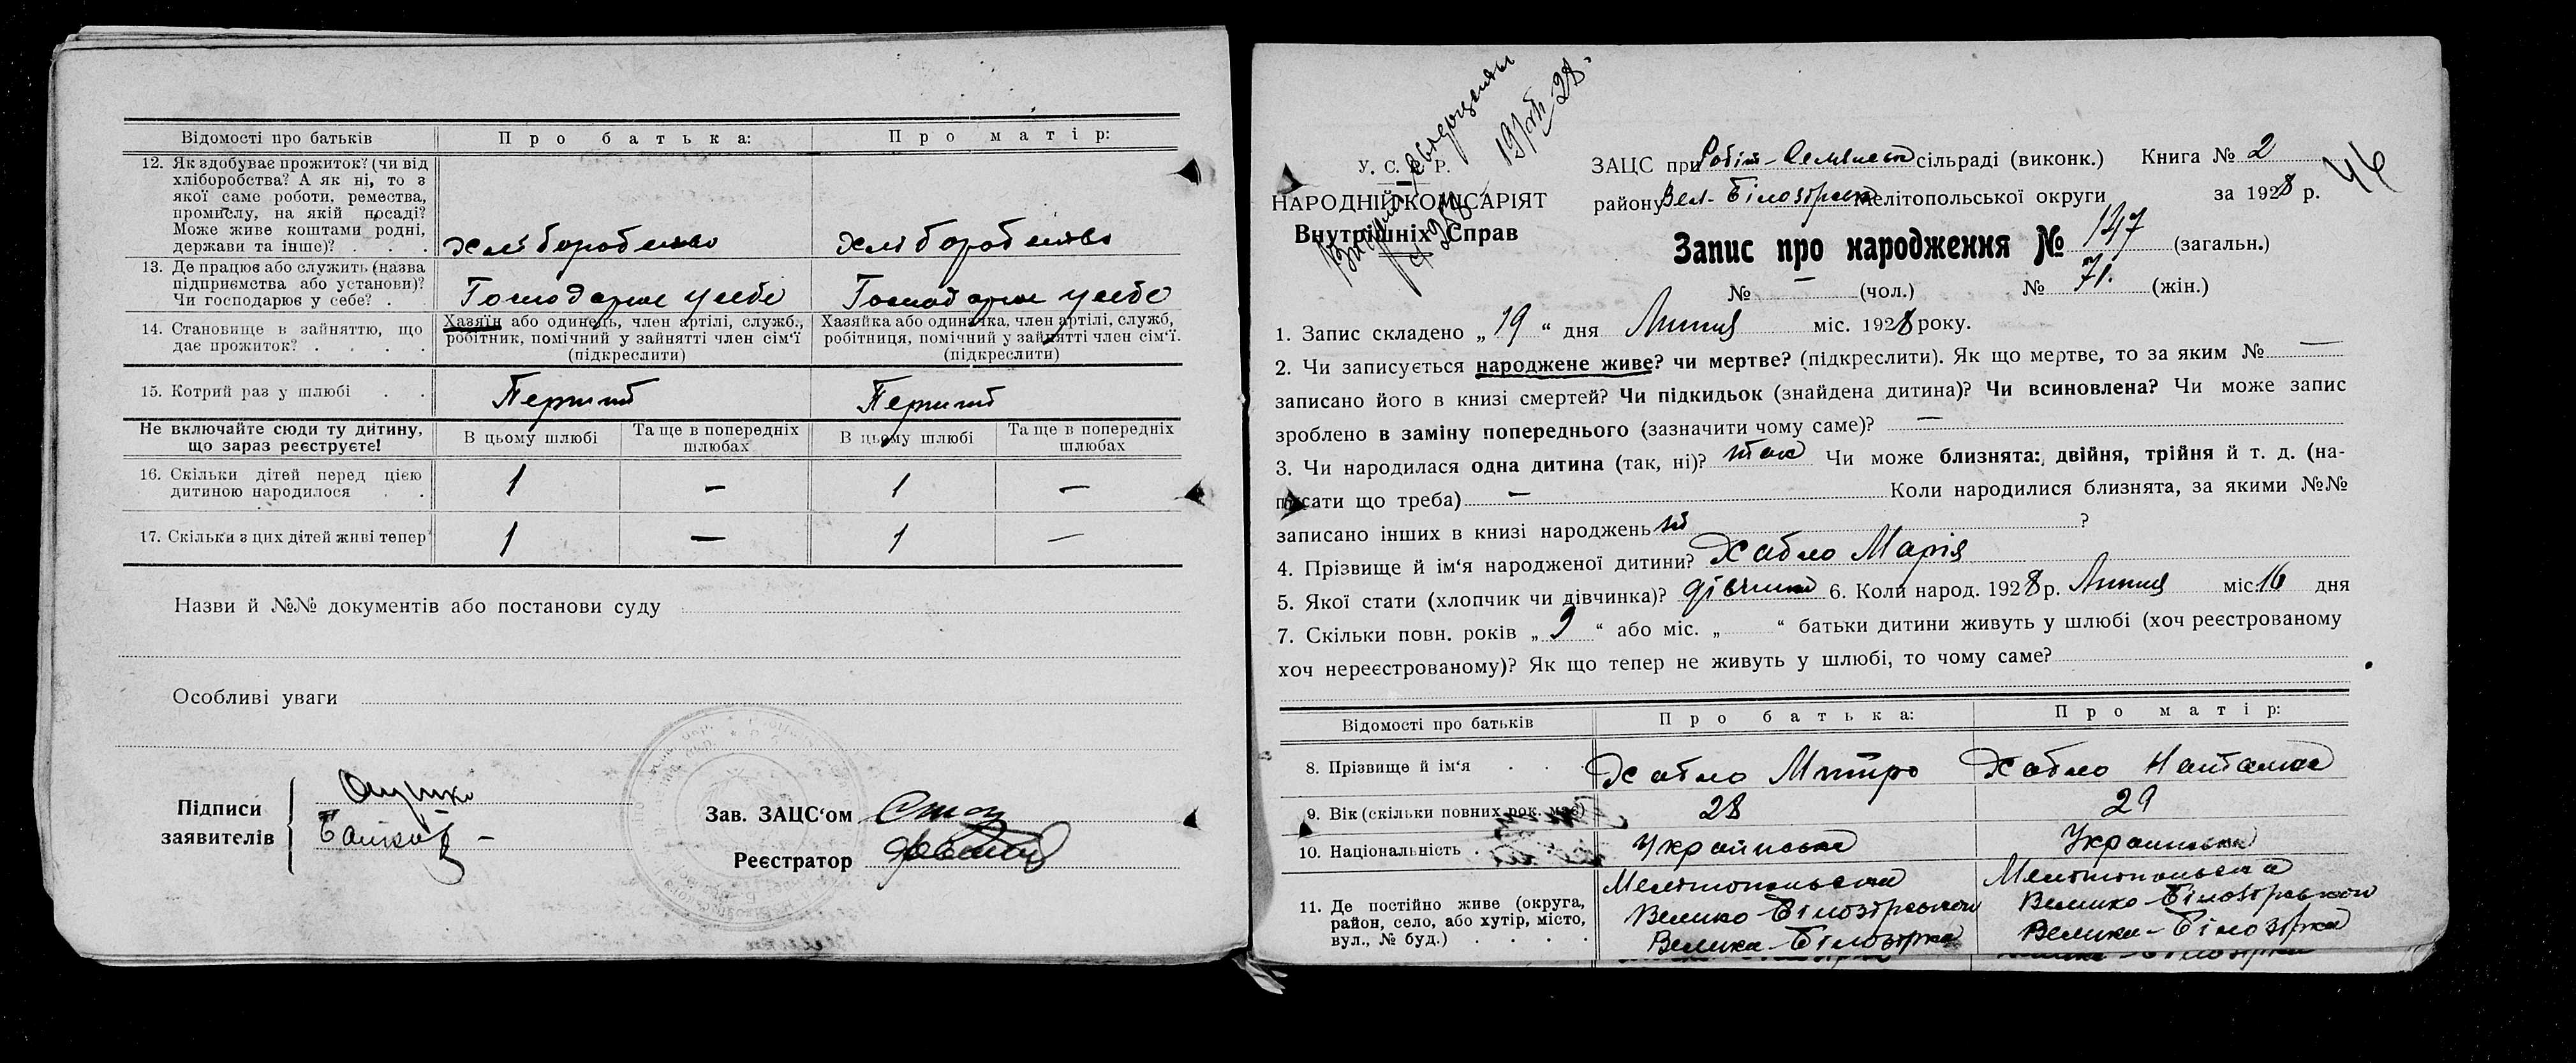 Відомості про батьків Про батька: Про матір:
12. Як здобуває прожиток? (чи від
хліборобства? А як ні, то з
якої саме роботи, ремества,
промислу, на якій посаді?
Може живе коштами родні,
держави та інше)? . . . Хліборобство Хліборобство
13. Де працює або служить (назва
підприємства або установи)?
Чи господарює у себе? . Господарює у себе Господарює у себе
14. Становище в зайняттю, що
дає прожиток? . . . .
Хазяїн або одинець, член артілі, служб.,
робітник, помічний у зайнятті член сім'ї
(підкреслити)
Хазяйка або одиначка, член артілі, служб,
робітниця, помічний у зайнятті член сім'ї.
(підкреслити)
15. Котрий раз у шлюбі . . Перший Перший
Не включайте сюди ту дитину,
що зараз реєструєте!
В цьому шлюбі Та ще в попередніх шлюбах В цьому шлюбі Та ще в попередніх шлюбах
16. Скільки дітей перед цією
дитиною народилося . . 1 — 1 —
17. Скільки з цих дітей живі тепер 1 — 1 —
Назви й №№ документів або постанови суду
Особливі уваги
Підписи
заявителів
Зав. ЗАЦС'ом
Реєстратор
19/VII 28.
У. С. Р. Р.
НАРОДНІЙ КОМІСАРІЯТ
Внутрішніх Справ
ЗАЦС при сільраді (виконк.) Книга № 2
46
району Вел-Білозірськ Мелітопольської округи за 1928 р.
Запис про народження № 147 (загальн.)
№ — (чол.) № 71. (жін.)
1. Запис складено „ 19 “ дня Липня міс. 1928 року.
2. Чи записується народжене живе? чи мертве? (підкреслити). Як що мертве, то за яким № —
записано його в книзі смертей? Чи підкидьок (знайдена дитина)? Чи всиновлена? Чи може запис
зроблено в заміну попереднього (зазначити чому саме)? —
3. Чи народилася одна дитина (так, ні)? так Чи може близнята: двійня, трійня й т. д. (на-
писати що треба) — Коли народилися близнята, за якими №№
записано інших в книзі народжень ?
4. Прізвище й ім'я народженої дитини? Хабло Марія
5. Якої стати (хлопчик чи дівчинка)? дівчинка 6. Коли народ. 1928 р. Липня міс. 16 дня
7. Скільки повн. років „ 9 “ або міс. „ “ батьки дитини живуть у шлюбі (хоч реєстрованому
хоч нереєстрованому)? Як що тепер не живуть у шлюбі, то чому саме?
Відомості про батьків Про батька: Про матір:
8. Прізвище й ім'я . . . Хабло Митро Хабло Наталка
9. Вік (скільки повних рок. має) 28 29
10. Національність . Українська Українська
11. Де постійно живе (округа,
район, село, або хутір, місто,
вул., № буд.) . . . .
Мелітопольська Мелітопольська
Велико-Білозірський Велико-Білозірський
Велика-Білозірка Велика-Білозірка